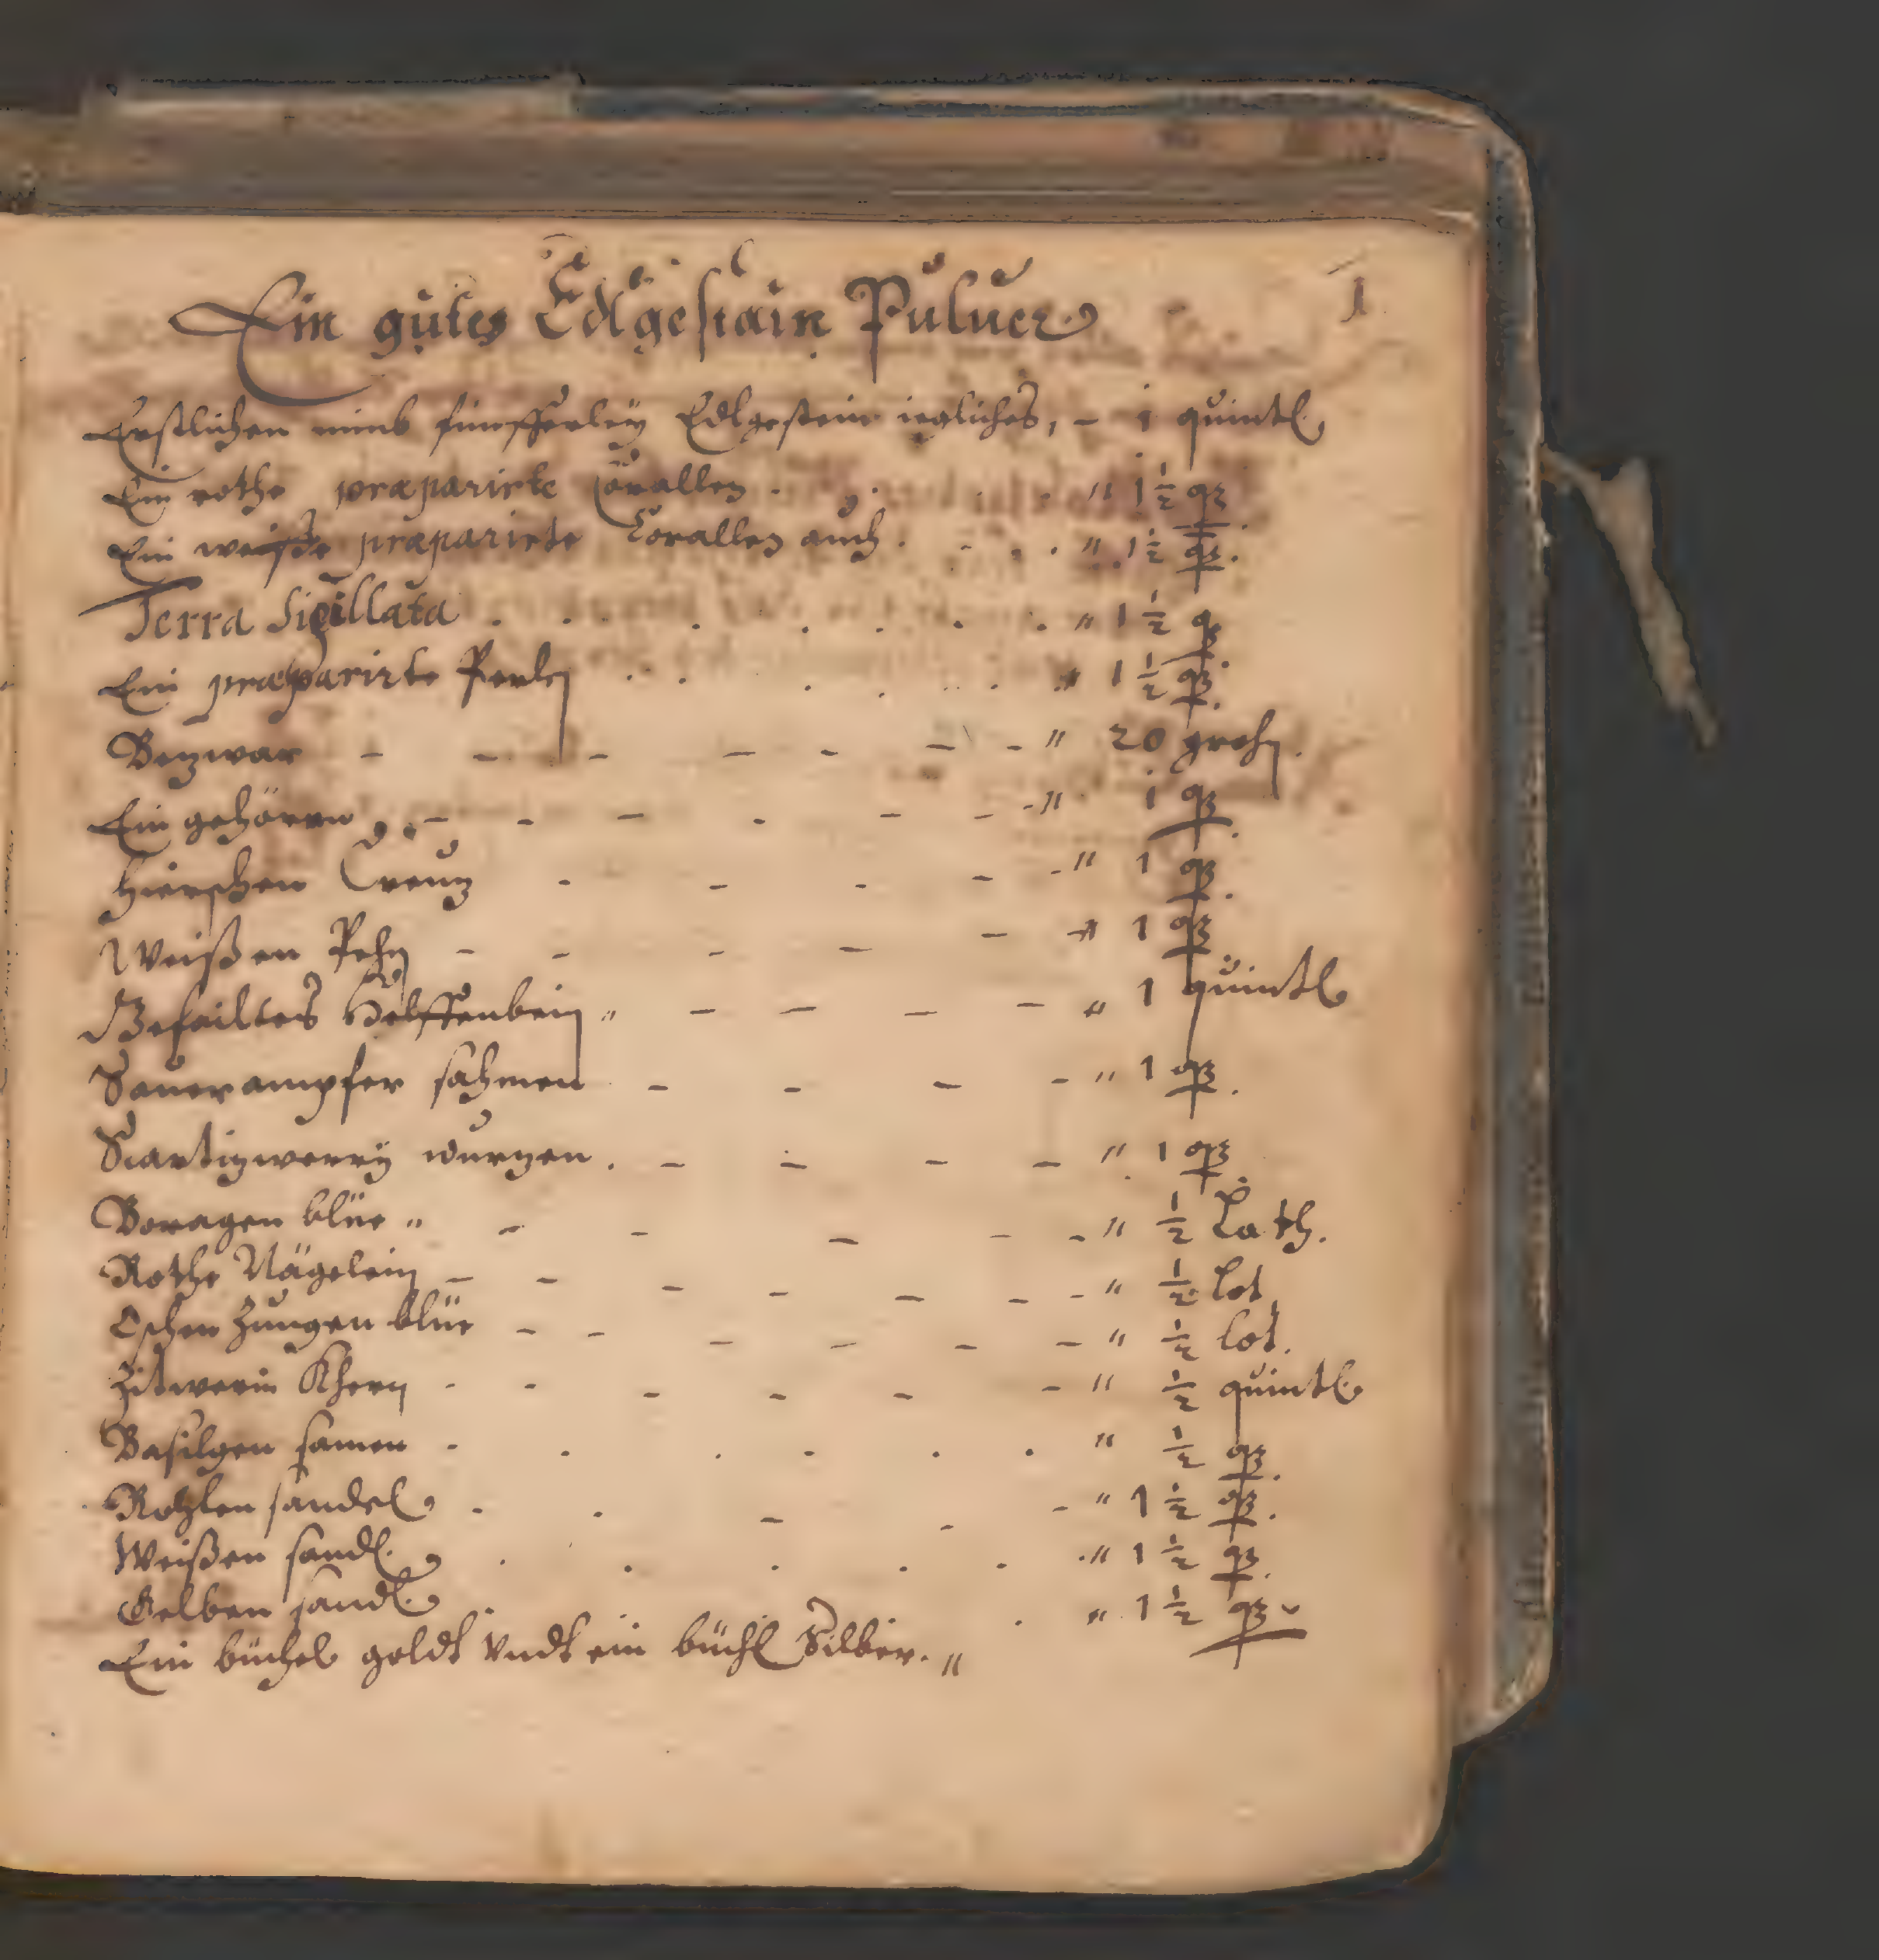 1
Ein gutes Edlgestain Puluer
Erstlichen nimb fünfferleÿ Edlgestein iegliches, – 1 quintl
Ein rothe præparirte Corallen . . . . " 1 ½ q
Ein weisse præparirte Corallen auch . . . . " 1 ½ q.
Terra Sigillata . . . . . . . " 1 ½ q
Ein præparirte Perln . . . . . . " 1 ½ q.
Bezwar – – – – – – – " 20 grehn.
Ein gehörrn – – – – – – – " 1 q.
Hierschen Creutz – – – – – " 1 q.
Weißen – – – – – " 1 q
Gefailtes Helffenbein " – – – – " 1 quintl
Sauerampfer sahmen – – – – " 1 q.
wurzen . – – – – " 1 q.
Boragen blüe " – – – – – " ½ Loth.
Rothe Nägelein – – – – – – – " ½ Lot
Ochsen Zungen blüe – – – – – – " ½ Lot.
Zitwerin Khern – – – – – – " ½ quintl
Basilgen samen . . . . . . " ½ q.
sandel . . – – – " 1 ½ q.
Weißen sandl . . . . . . " 1 ½ q.
Gelben sandl . . " 1 ½ q
Ein büchel goldt Vndt ein büchl Silber. "